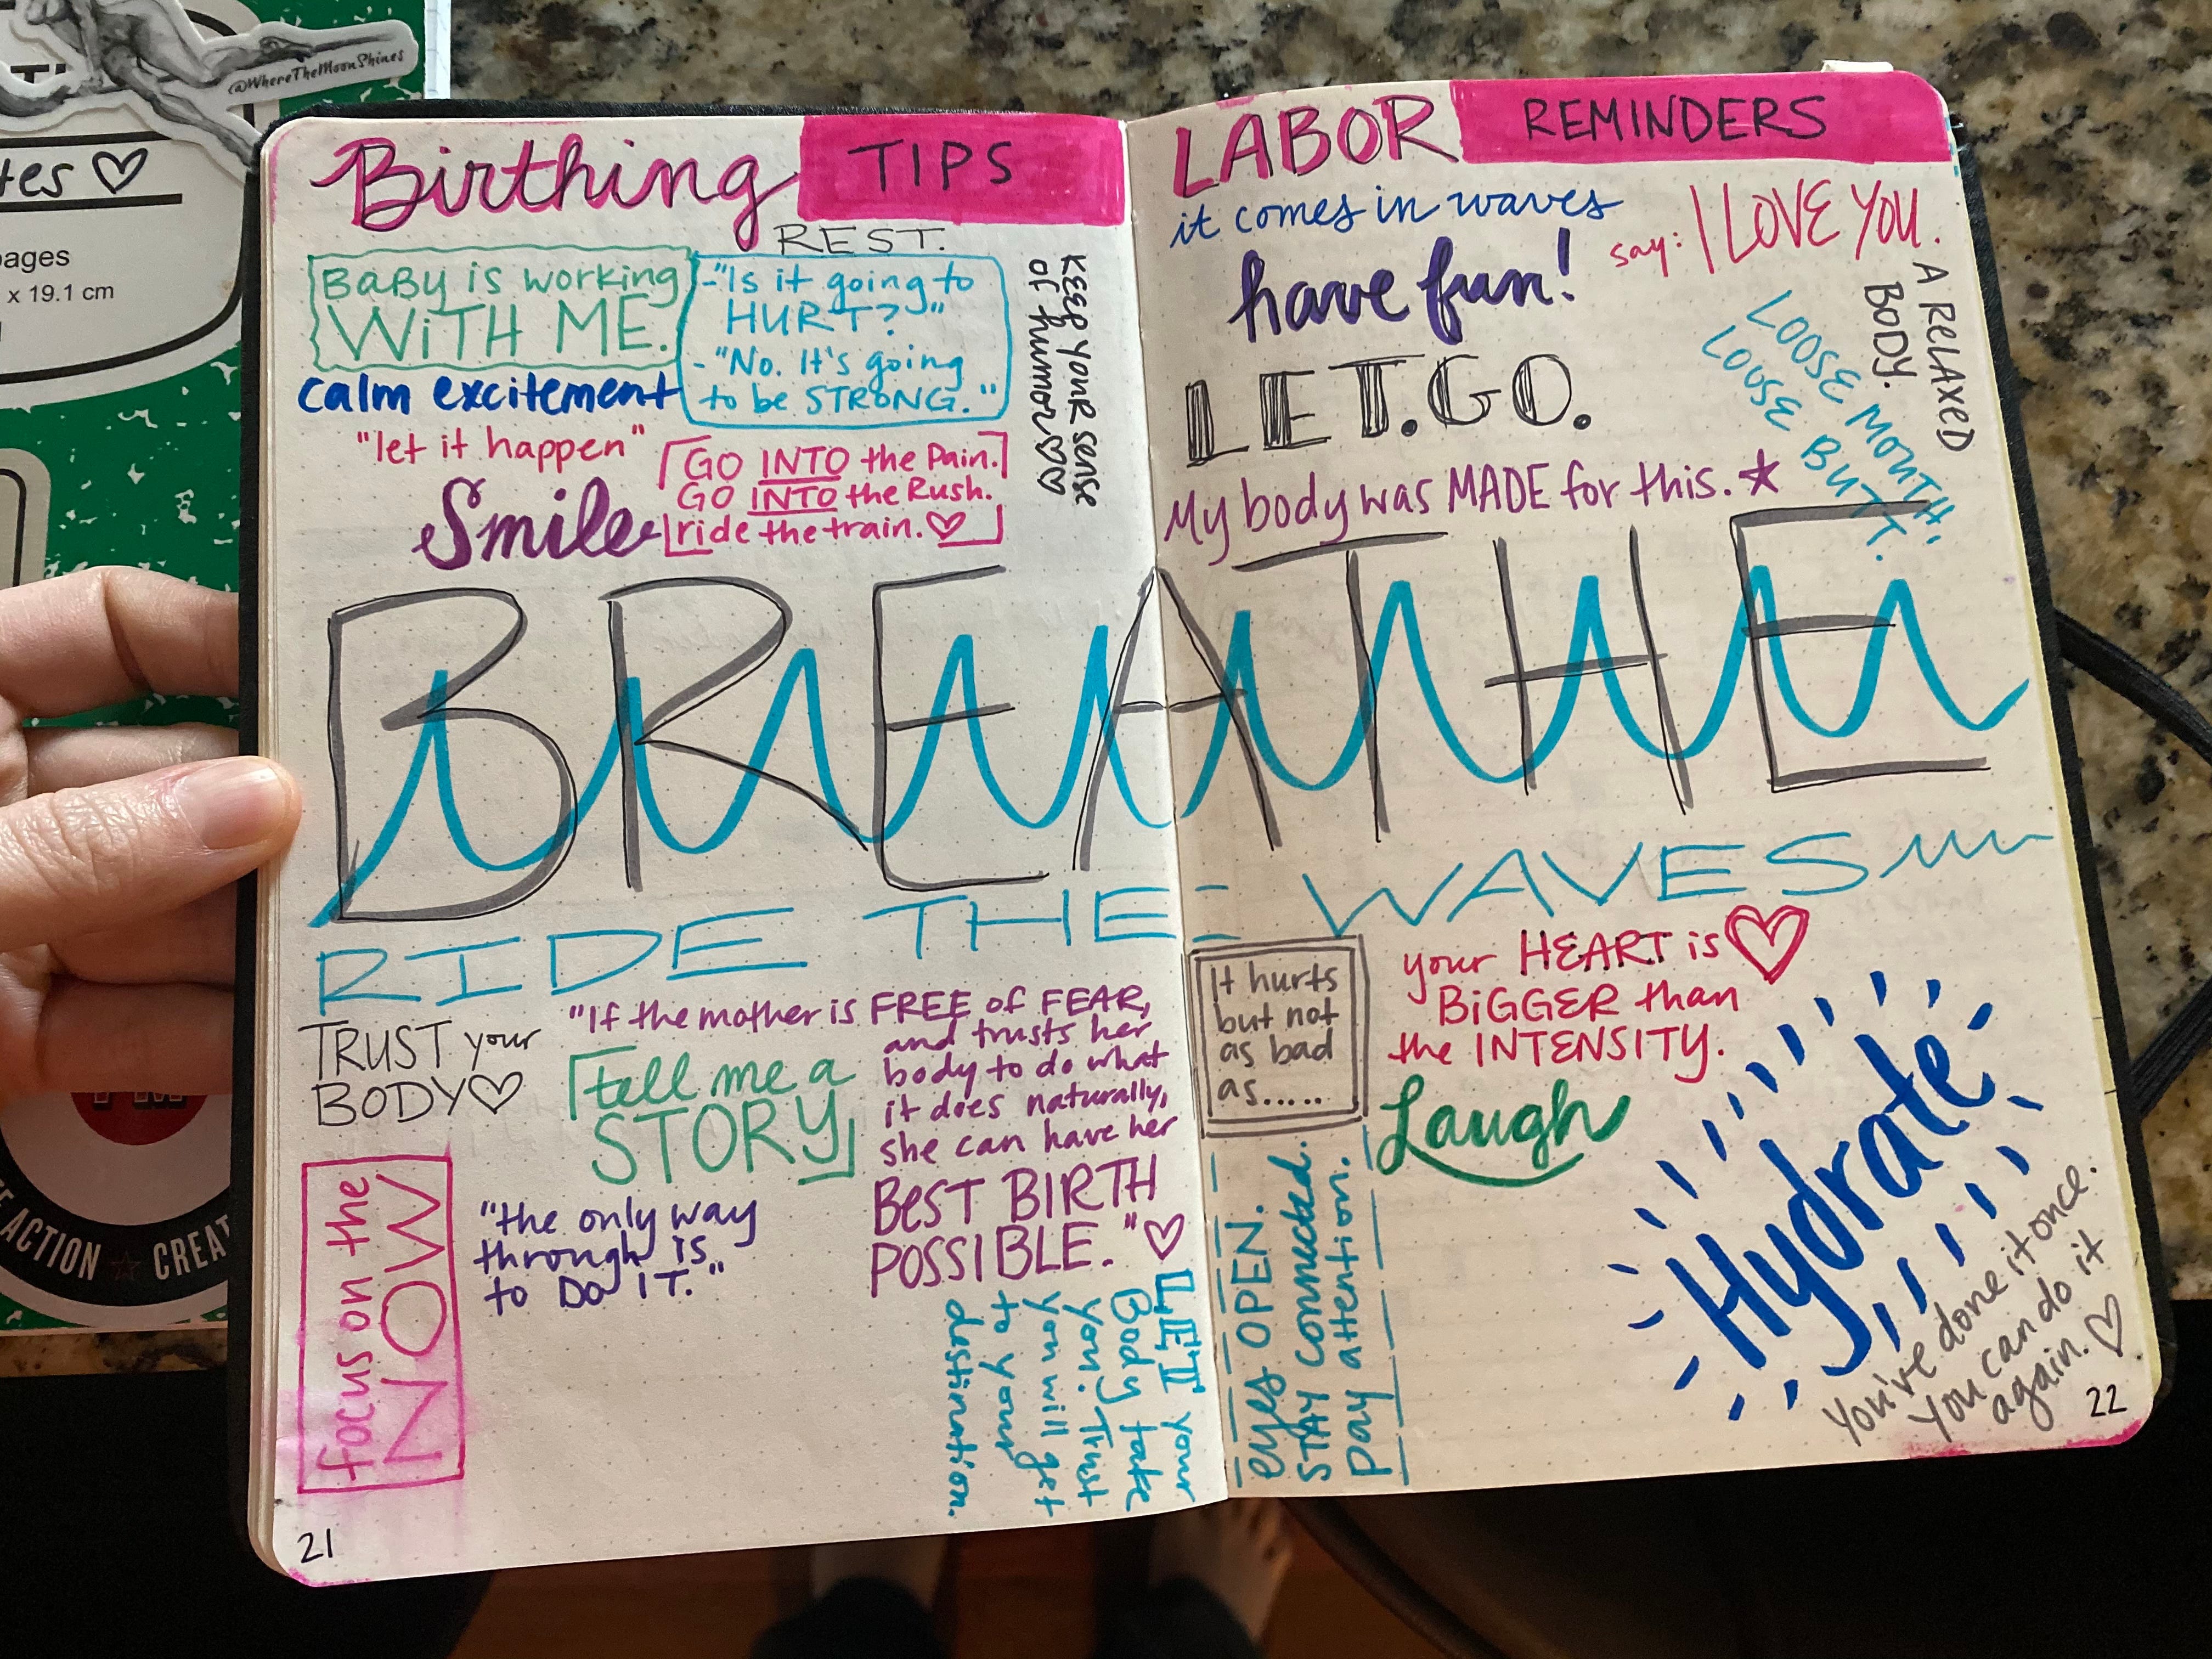 @WhereTheMoonShines
tes ♡
pages
x 19.1 cm
E ACTION ★ CREAT
Birthing TIPS
REST.
BABY is working
WITH ME.
-"Is it going to
HURT?"
-"No. It's going
to be STRONG."
KEEP your sense
of humor ♡♡
calm excitement
"let it happen"
Smile
GO INTO the Pain.
GO INTO the Rush.
ride the train. ♡
LABOR REMINDERS
it comes in waves
say: I LOVE YOU.
have fun!
A RELAXED
BODY.
LOOSE MOUTH,
LOOSE BUTT.
LET.GO.
My body was MADE for this. ★
BREATHE
RIDE THE WAVES
TRUST your
BODY ♡
"If the mother is FREE of FEAR,
and trusts her
body to do what
it does naturally,
she can have her
BEST BIRTH
POSSIBLE." ♡
tell me a
STORY
focus on the
NOW
"the only way
through is
to DO IT."
LET your
Body take
you. Trust
you will get
to your
destination.
21
It hurts
but not
as bad
as.....
your HEART is ♡
BIGGER than
the INTENSITY.
Laugh
eyes OPEN.
STAY connected.
pay attention.
Hydrate
You've done it once.
You can do it
again. ♡
22